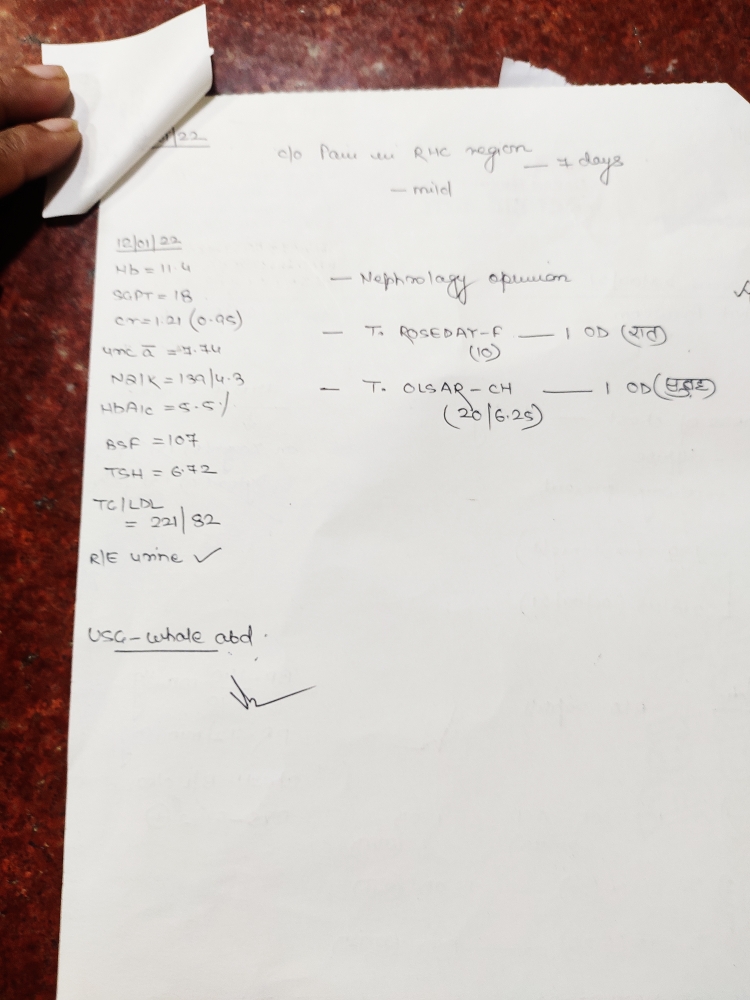 /22
c/o Pain in RHC region — 7 days
— mild
12/01/22
Hb = 11.4
SGPT = 18
Cr = 1.21 (0.95)
uric ā = 7.74
Na/K = 139/4.3
HbA1c = 5.5%
BSF = 107
TSH = 6.72
TC/LDL
= 221/82
R/E urine ✓
USG - whole abd.
— Nephrology opinion
— T. ROSEDAY-F — 1 OD (रात)
(10)
— T. OLSAR-CH — 1 OD (सुबह)
(20/6.25)